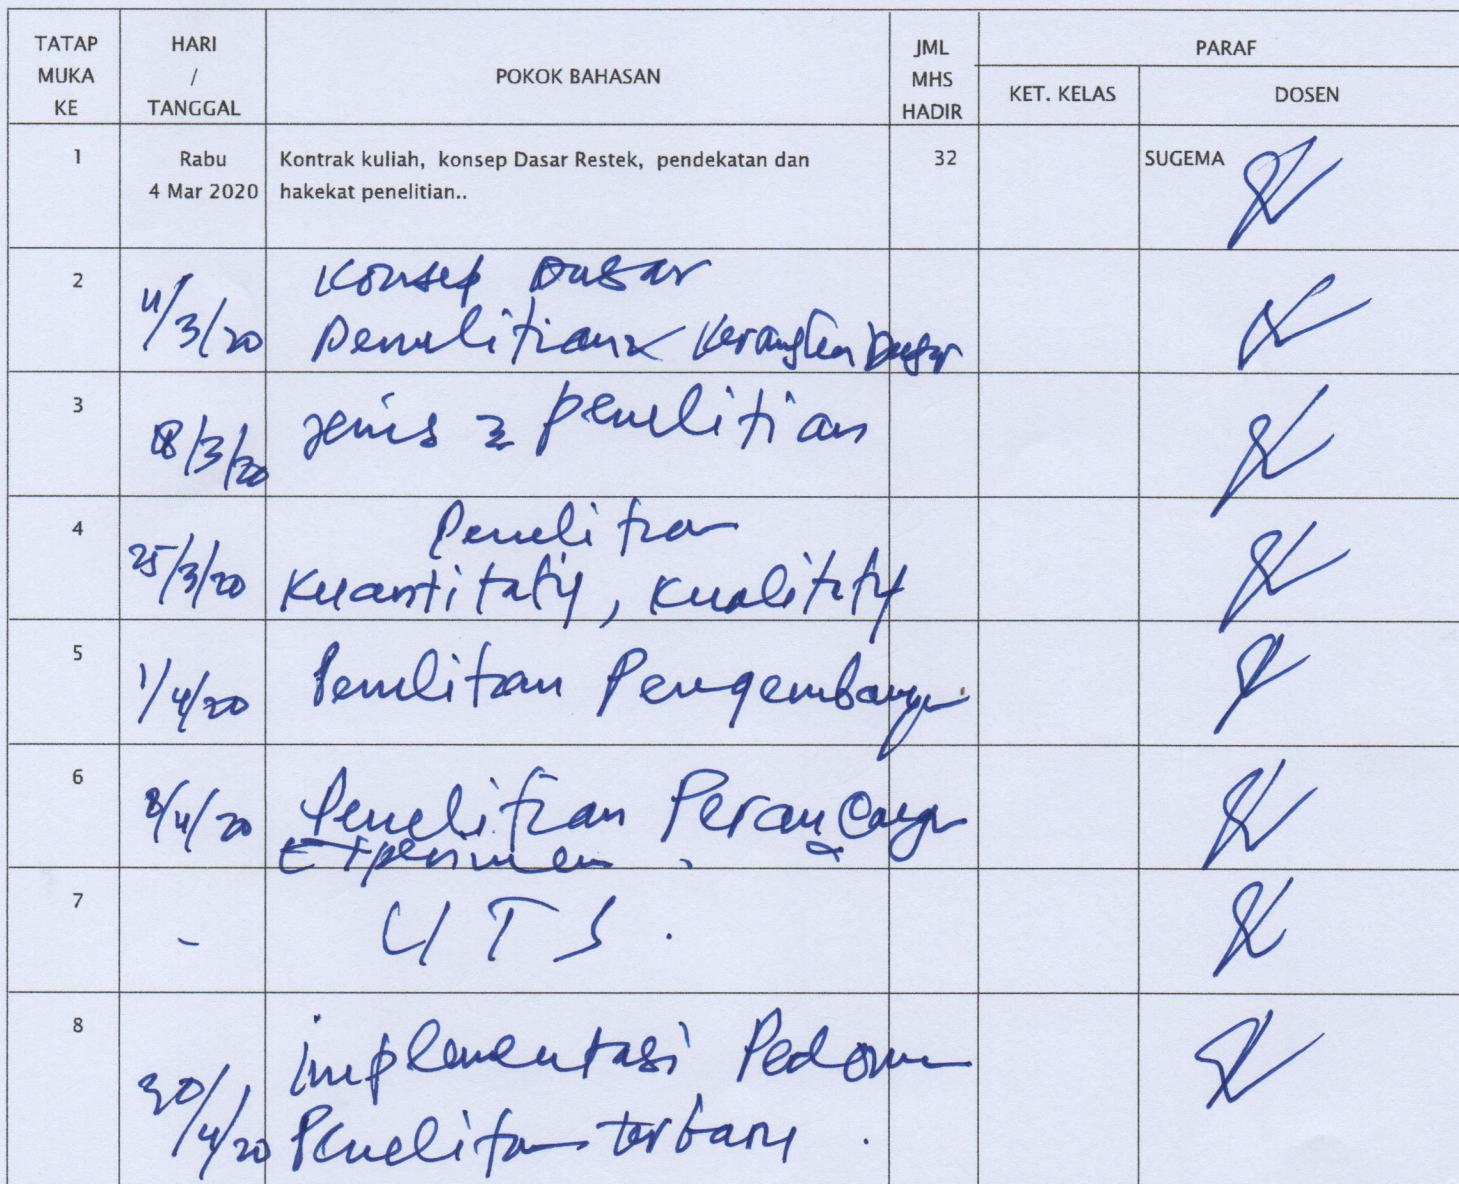 TATAP MUKA KE
HARI / TANGGAL
POKOK BAHASAN
JML MHS HADIR
PARAF
KET. KELAS
DOSEN
1
Rabu
4 Mar 2020
Kontrak kuliah, konsep Dasar Restek, pendekatan dan
hakekat penelitian..
32
SUGEMA
2
11/3/20
Konsep Dasar
Penelitian & Kerangka Dasar
3
18/3/20
Jenis 2 penelitian
4
25/3/20
Penelitian
Kuantitatif, Kualitatif
5
1/4/20
Penelitian Pengembangan
6
8/4/20
Penelitian Perancangan
Experimen
7
-
UTS.
8
30/4/20
implementasi Pedoman
Penelitian terbaru.